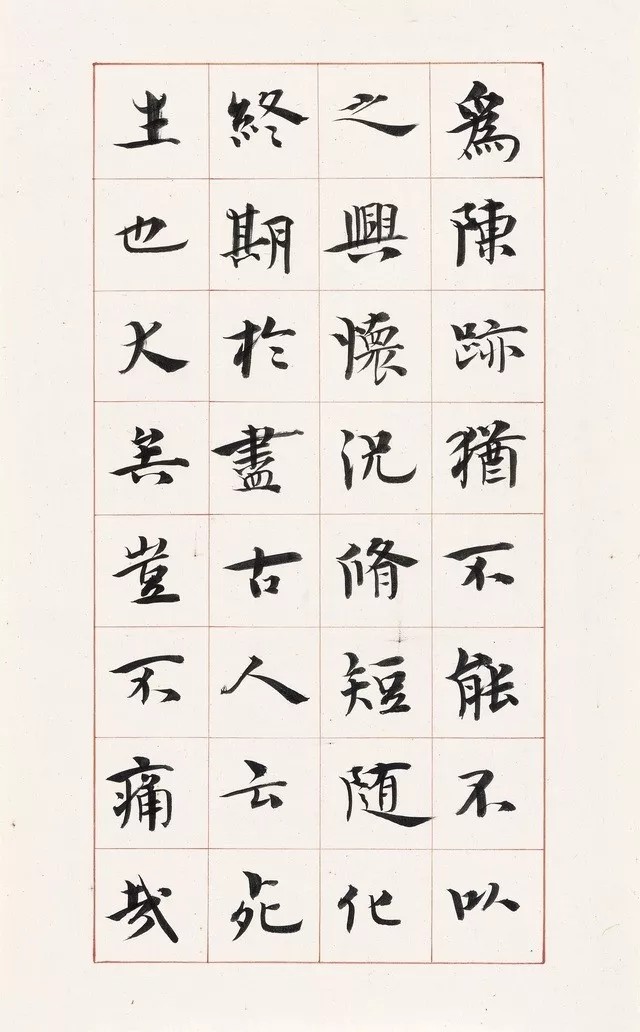 為陳跡猶不能不以
之興懷況脩短隨化
終期於盡古人云死
生也大矣豈不痛哉